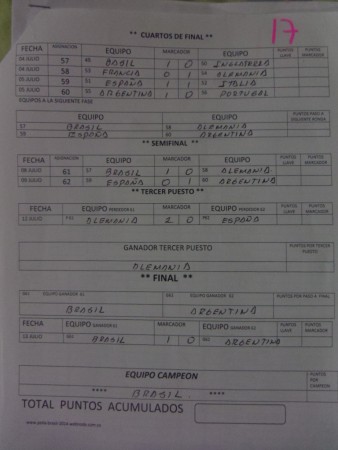 17
** CUARTOS DE FINAL **
FECHA EQUIPO MARCADOR EQUIPO PUNTOS LLAVE PUNTOS MARCADOR
04 JULIO 57 49 BRASIL 1 0 50 INGLATERRA
04 JULIO 58 53 FRANCIA 0 1 54 ALEMANIA
05 JULIO 59 51 ESPAÑA 1 1 52 ITALIA
05 JULIO 60 55 ARGENTINA 1 0 56 PORTUGAL
EQUIPOS A LA SIGUIENTE FASE
EQUIPO EQUIPO PUNTOS PASO A SIGUIENTE RONDA
57 BRASIL 58 ALEMANIA
59 ESPAÑA 60 ARGENTINA
** SEMIFINAL **
FECHA EQUIPO MARCADOR EQUIPO PUNTOS LLAVE PUNTOS MARCADOR
08 JULIO 61 57 BRASIL 1 0 58 ALEMANIA
09 JULIO 62 59 ESPAÑA 0 1 60 ARGENTINA
** TERCER PUESTO **
FECHA EQUIPO PERDEDOR 61 MARCADOR EQUIPO PERDEDOR 62 PUNTOS LLAVE PUNTOS MARCADOR
12 JULIO P61 ALEMANIA 2 0 P62 ESPAÑA
GANADOR TERCER PUESTO PUNTOS POR TERCER PUESTO
ALEMANIA
** FINAL **
G61 EQUIPO GANADOR 61 G62 EQUIPO GANADOR 62 PUNTOS POR PASO A FINAL
BRASIL ARGENTINA
FECHA EQUIPO GANADOR 61 MARCADOR EQUIPO GANADOR 62 PUNTOS LLAVE PUNTOS MARCADOR
13 JULIO G61 BRASIL 1 0 G62 ARGENTINA
EQUIPO CAMPEON PUNTOS POR CAMPEON
**** BRASIL ****
TOTAL PUNTOS ACUMULADOS